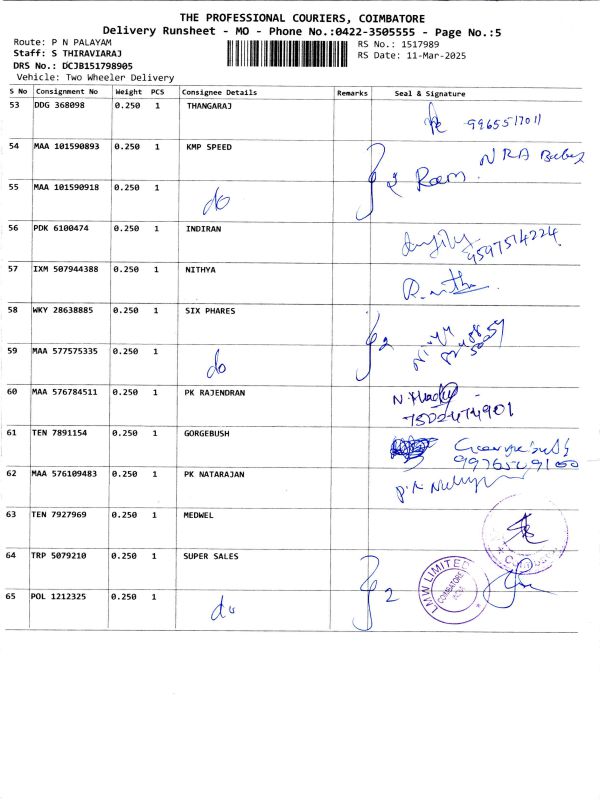 THE PROFESSIONAL COURIERS, COIMBATORE
Delivery Runsheet - MO - Phone No.:0422-3505555 - Page No.:5
Route: P N PALAYAM RS No.: 1517989
Staff: S THIRAVIARAJ RS Date: 11-Mar-2025
DRS No.: DCJB151798905
Vehicle: Two Wheeler Delivery
S No Consignment No Weight PCS Consignee Details Remarks Seal & Signature
53 DDG 368098 0.250 1 THANGARAJ
9965517011
54 MAA 101590893 0.250 1 KMP SPEED
2 Room
55 MAA 101590918 0.250 1 do
56 PDK 6100474 0.250 1 INDIRAN
9597514224
57 IXM 507944388 0.250 1 NITHYA
58 WKY 28638885 0.250 1 SIX PHARES
2
59 MAA 577575335 0.250 1 do
60 MAA 576784511 0.250 1 PK RAJENDRAN
7502474901
61 TEN 7891154 0.250 1 GORGEBUSH
62 MAA 576109483 0.250 1 PK NATARAJAN
63 TEN 7927969 0.250 1 MEDWEL
64 TRP 5079210 0.250 1 SUPER SALES
2
LMW LIMITED
COIMBATORE
65 POL 1212325 0.250 1 do